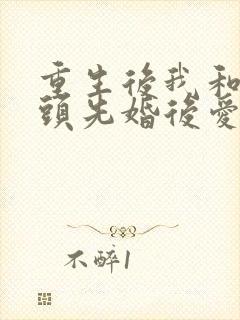 重生後我和
頭先婚後愛
不醉1